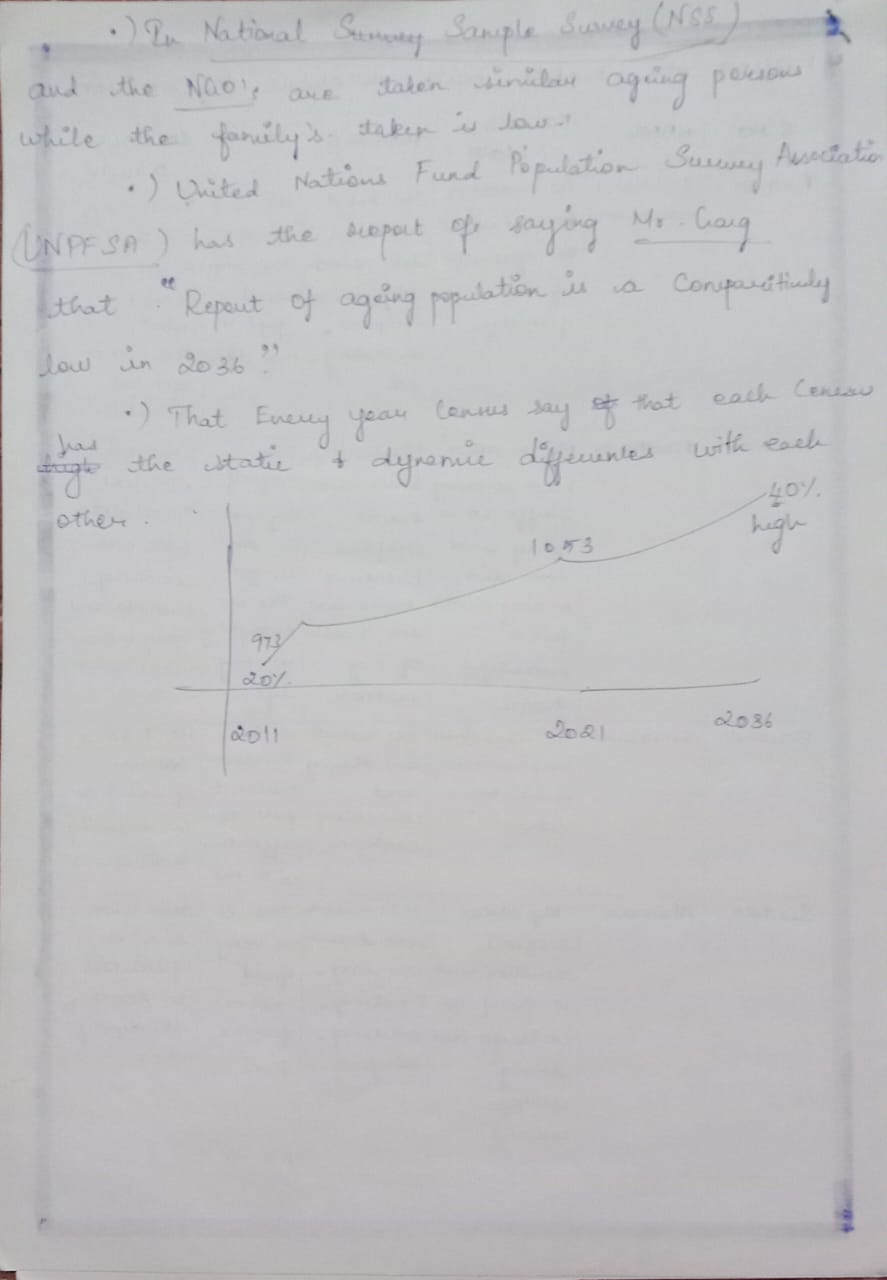 •) In National Survey Sample Survey (NSS)
and the NGO's are taken similar ageing persons
while the family's taken is low.
•) United Nations Fund Population Survey Associatio
(UNPFSA) has the report of saying Mr. Craig
that "Report of ageing population is a Comparitively
low in 2036"
•) That Every year Census say of that each Census
has
the static & dynamic differences with each
other.
40%.
high
1053
973
20%.
2011 2021 2036